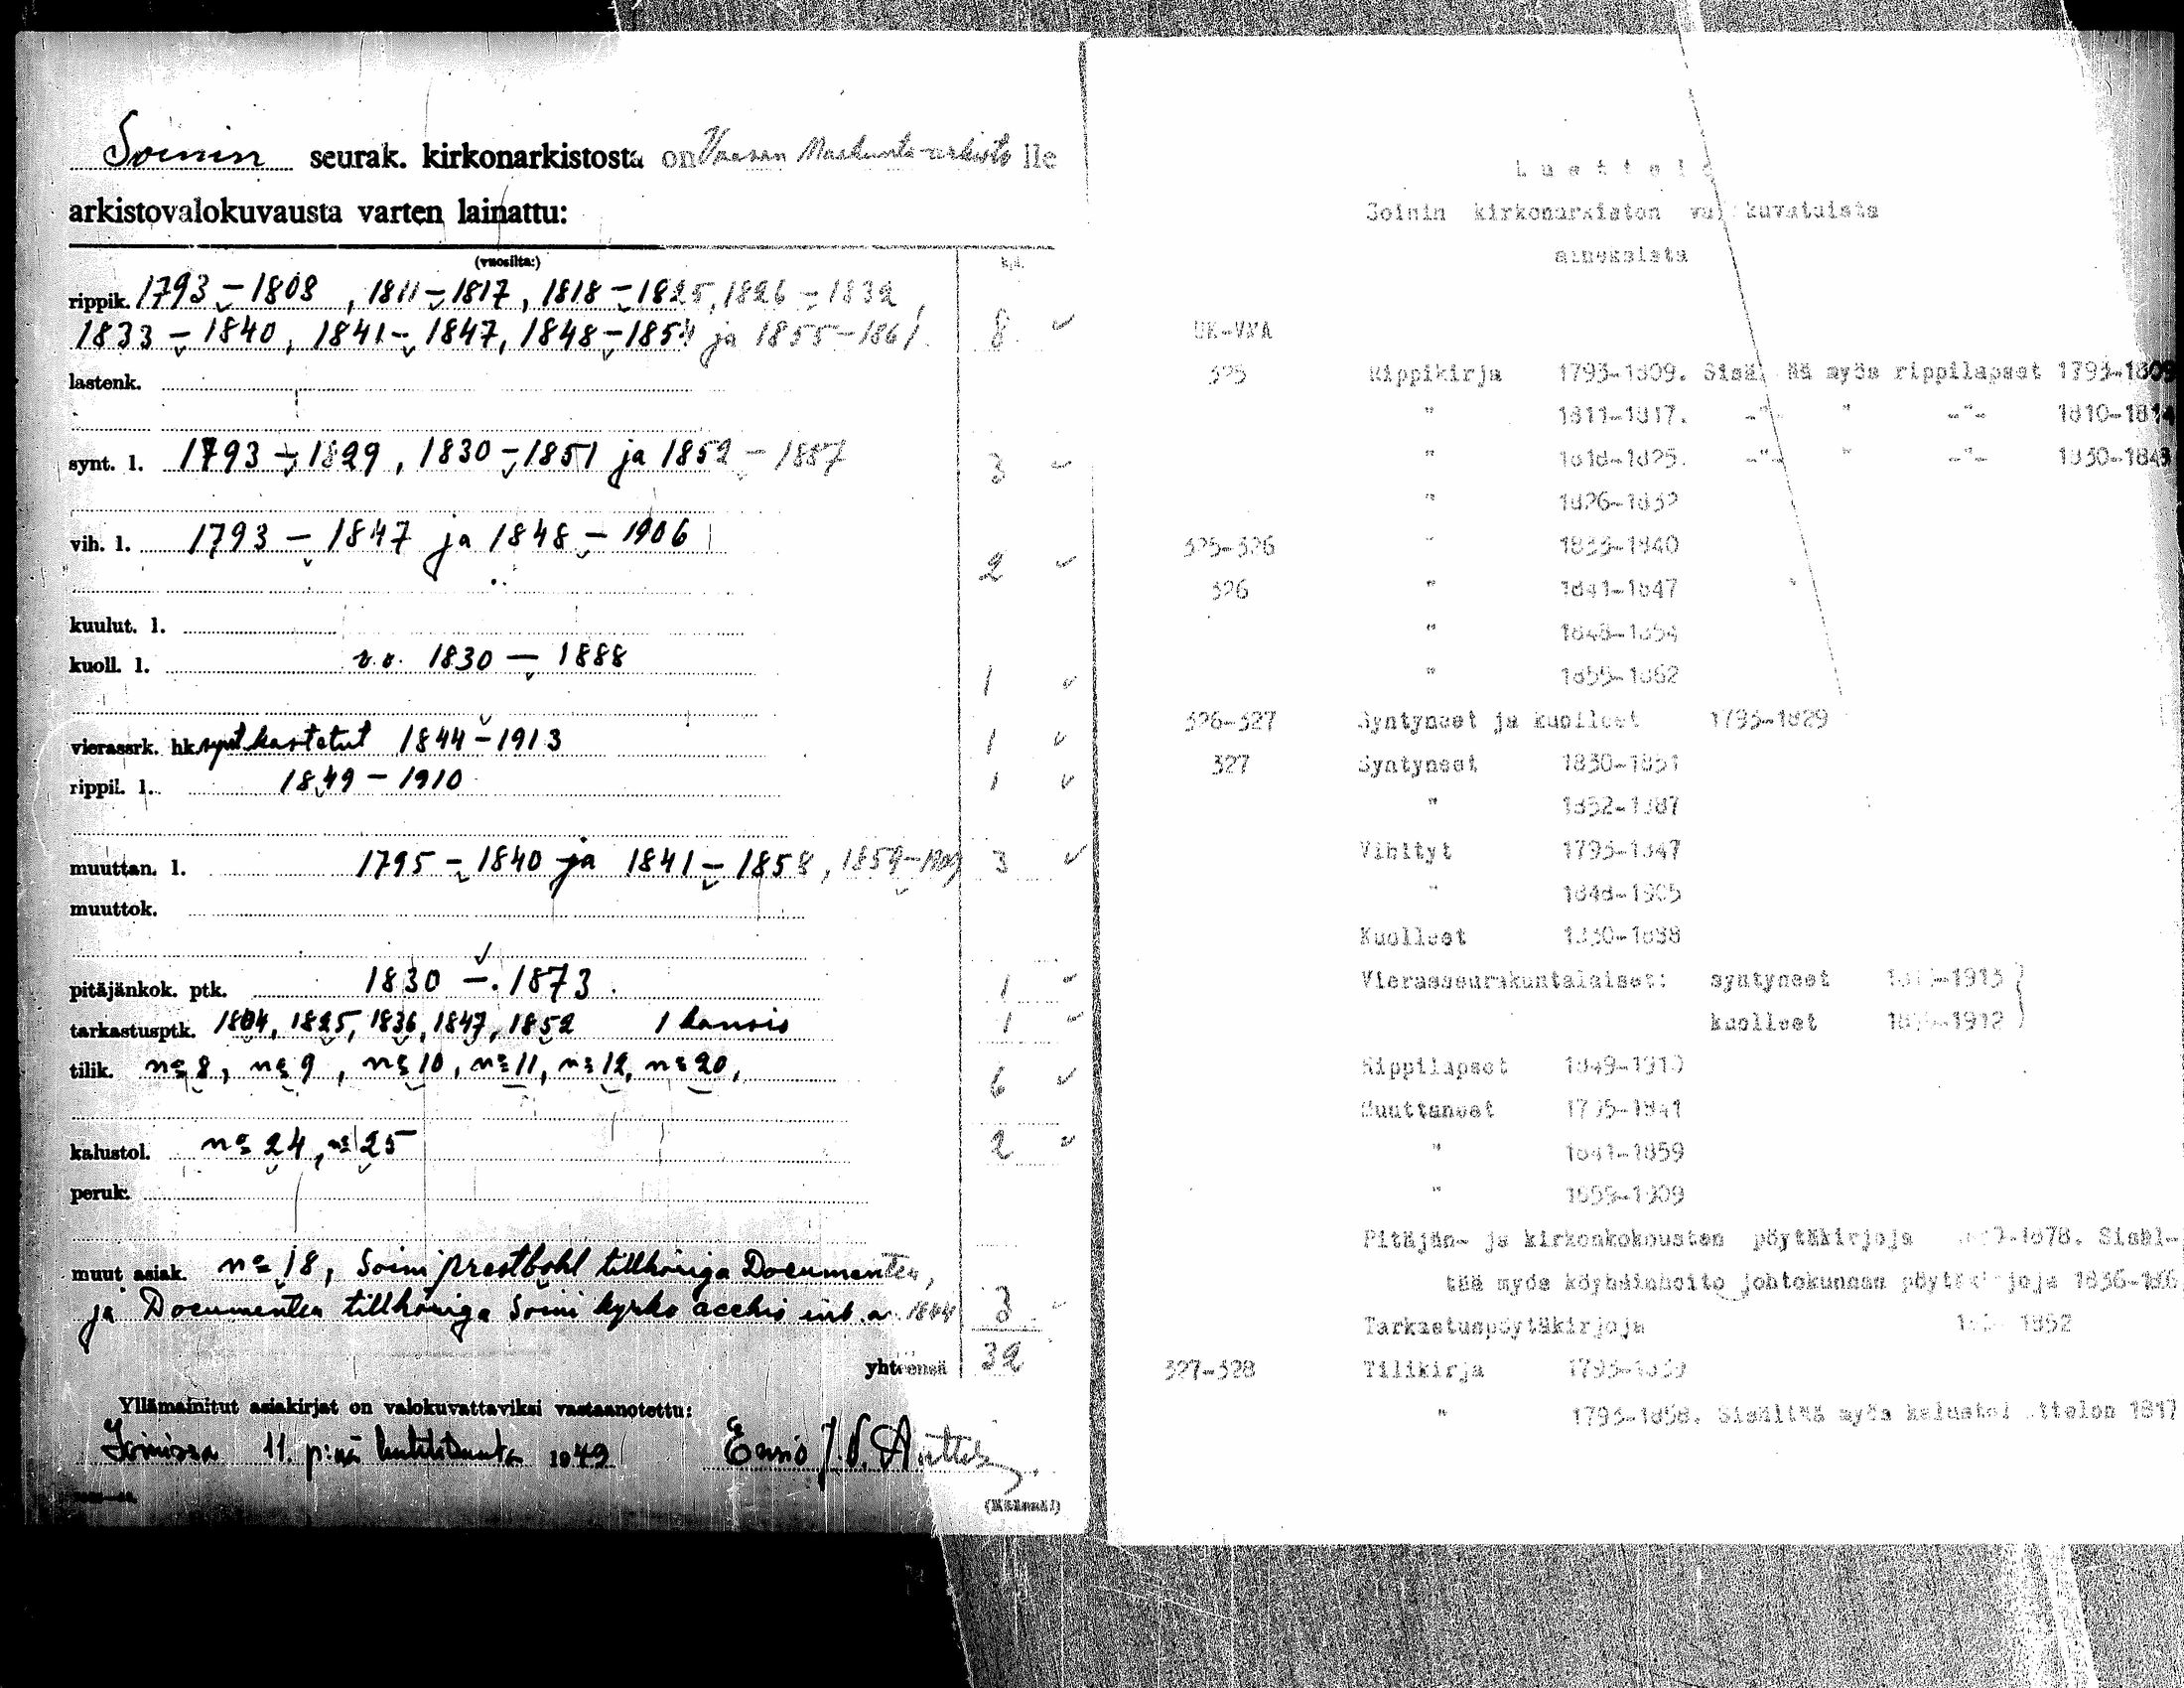 Soinin seurak. kirkonarkistosta on Vaasan Maakunta-arkisto lle
arkistovalokuvausta varten lainattu:
(vuosilta:) kpl.
rippik. 1793 – 1808, 1811 – 1817, 1818 – 1825, 1826 – 1832,
1833 – 1840, 1841 – 1847, 1848 – 1854 ja 1855 – 1861. 8 ✓
lastenk.
synt. l. 1793 – 1829, 1830 – 1851 ja 1852 – 1887 3 ✓
vih. l. 1793 – 1847 ja 1848 – 1906 2 ✓
kuulut. l.
kuoll. l. v.v. 1830 – 1888 1 ✓
vierassrk. hk. synt kastetut 1844 – 1913 1 ✓
rippil. l. 1849 – 1910 1 ✓
muuttan. l. 1795 – 1840 ja 1841 – 1858, 1859 – 1909 3 ✓
muuttok.
pitäjänkok. ptk. 1830 – 1873. 1 ✓
tarkastusptk. 1804, 1825, 1836, 1847, 1852 1 kansio 1 ✓
tilik. no 8, no 9, no 10, no 11, no 12, no 20, 6 ✓
kalustol. no 24, no 25 2 ✓
peruk.
muut asiak. no 18, Soini prestbohl tillhöriga Documenter,
ja Documenter tillhöriga Soini kyrko 1844 3
yhteensä 32
Yllämainitut asiakirjat on valokuvattaviksi vastaanotettu:
Soinissa 11. p:nä huhtikuuta 1949 J. V.
Luettelo
Soinin kirkonarkiston valokuvatuista
aineksista
UK-VMA
325 Rippikirja 1793-1809. Sisältää myös rippilapset 1793-1809
" 1811-1817. -"- " -"- 1810-1814
" 1818-1825. -"- " -"- 1830-1843
" 1826-1832
325-326 " 1833-1840
326 " 1841-1847
" 1848-1854
" 1855-1862
326-327 Syntyneet ja kuolleet 1793-1829
327 Syntyneet 1830-1851
" 1852-1887
Vihityt 1793-1847
" 1848-1905
Kuolleet 1830-1888
Vierasseurakuntalaiset: syntyneet -1913
kuolleet -1912
Rippilapset 1849-1910
Muuttaneet 1795-1841
" 1841-1859
" 1859-1909
Pitäjän- ja kirkonkokousten pöytäkirjoja -1878. Sisäl-
tää myös köyhäinhoito johtokunnan pöytäkirjoja 1836-186
Tarkastuspöytäkirjoja 1852
327-328 Tilikirja 1793-1839
" 1793-1858. Sisältää myös kalustoluettelon 1817